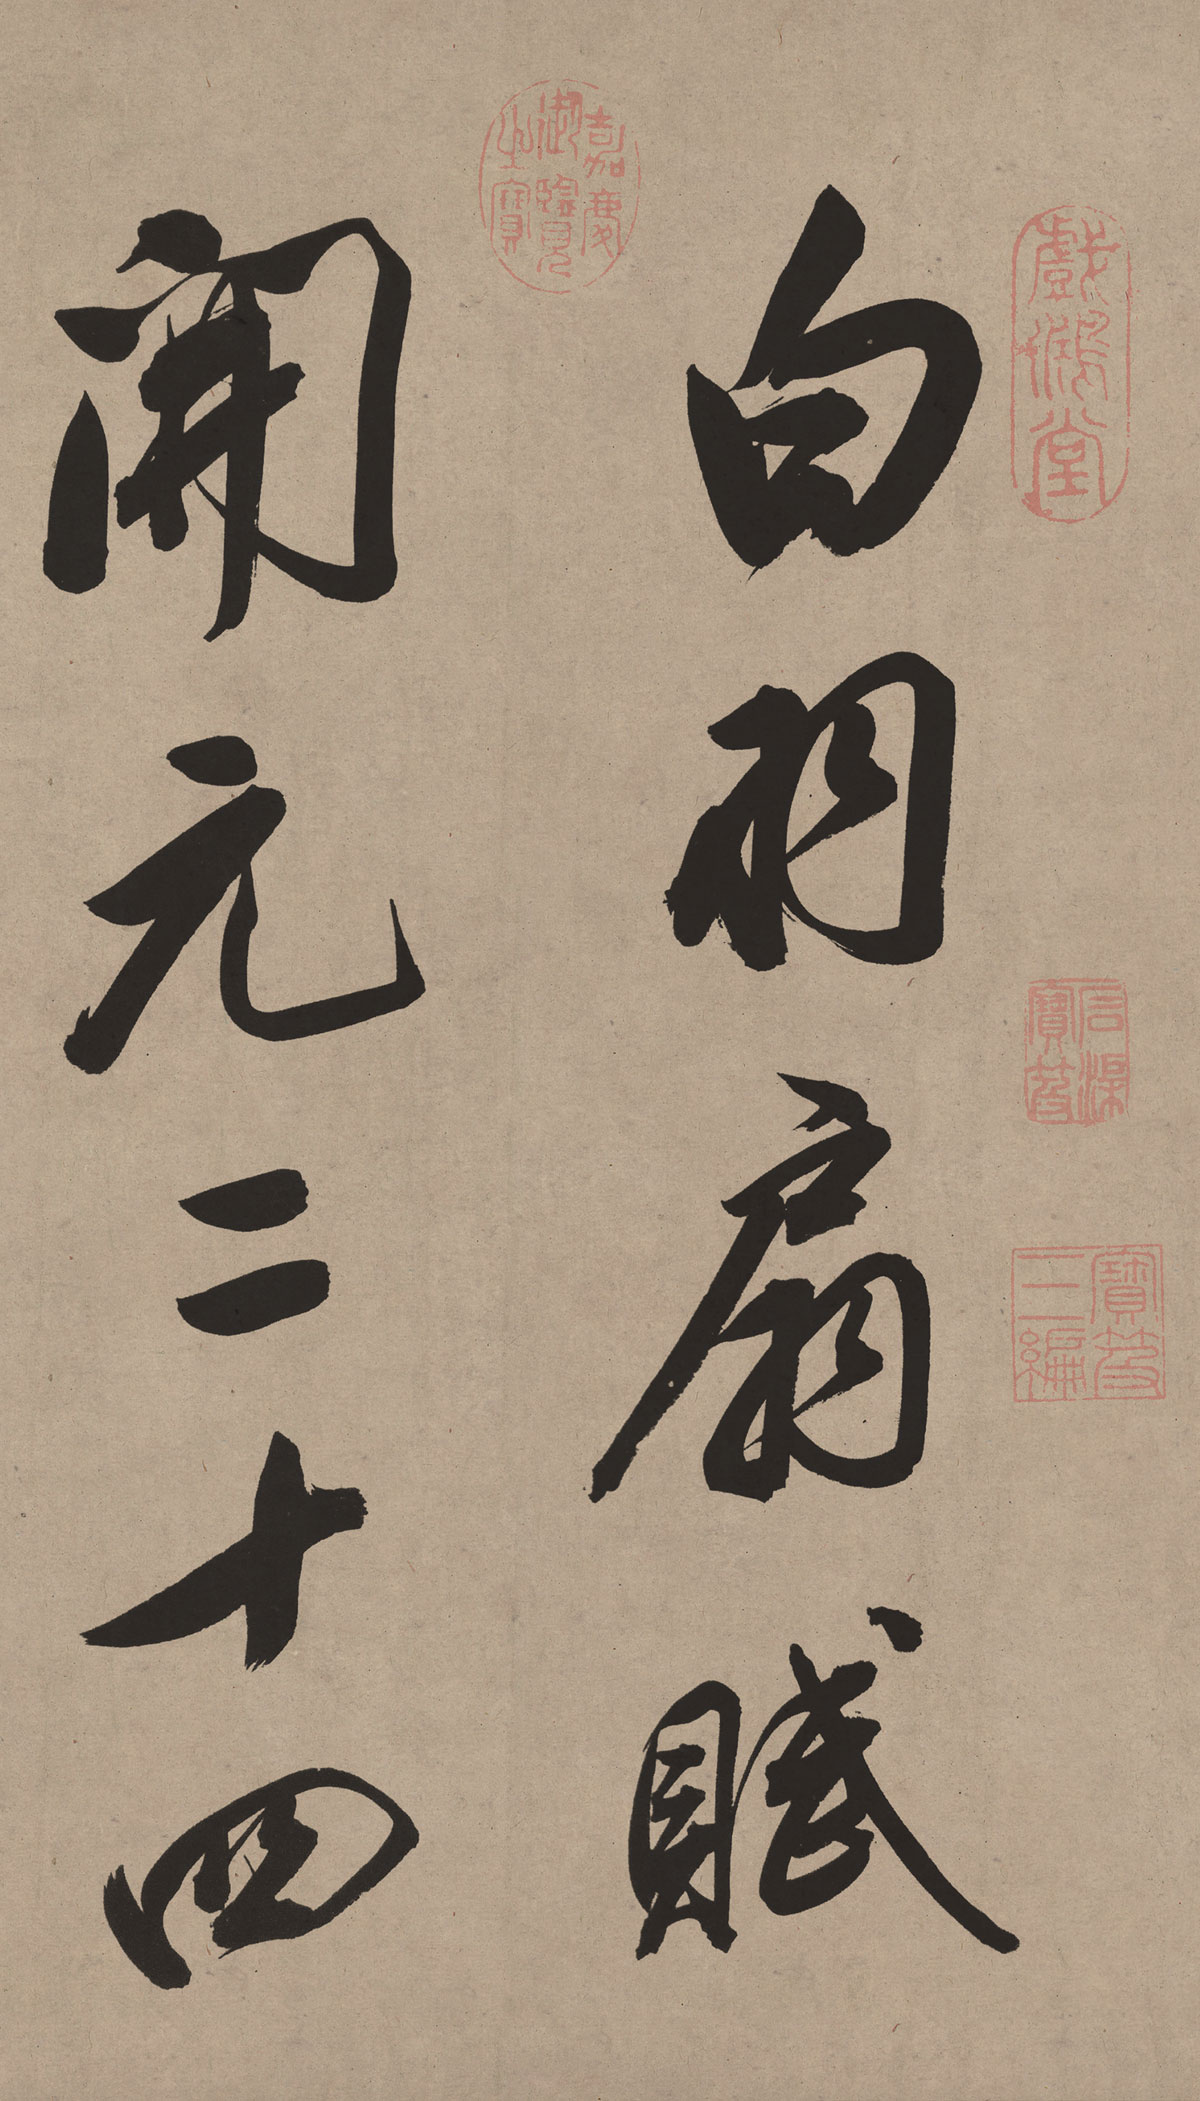 白羽扇賦
開元二十四
戲鴻堂
嘉慶御覽之寶
寶笈三編